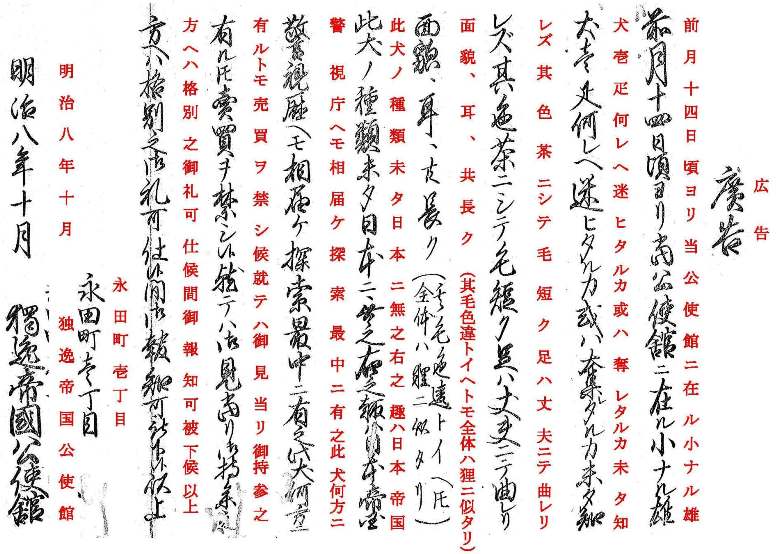 広告
廣告
前月十四日頃ヨリ当公使館ニ在ル小ナル雄
前月十四日頃ヨリ當公使舘ニ在ル小ナル雄
犬壱疋何レヘ迷ヒタルカ或ハ奪レタルカ未タ知
犬壱疋何レヘ迷ヒタルカ或ハ奪レタルカ未タ知
レズ其色茶ニシテ毛短ク足ハ丈夫ニテ曲レリ
レズ其色茶ニシテ毛短ク足ハ丈夫ニテ曲レリ
面貌、耳、共長ク（其毛色違トイヘトモ全体ハ狸ニ似タリ）
面貌、耳、共長ク（其毛色違トイヘ𪜈全体ハ狸ニ似タリ）
此犬ノ種類未タ日本ニ無之右之趣ハ日本帝国
此犬ノ種類未タ日本ニ無之右之趣日本帝国
警視庁ヘモ相届ケ探索最中ニ有之此犬何方ニ
警視廰ヘモ相届ケ探索最中ニ有之此犬何方ニ
有ルトモ売買ヲ禁シ候就テハ御見当リ御持参之
有ル𪜈賣買ヲ禁シ候就テハ御見當リ御持参之
方ヘハ格別之御礼可仕候間御報知可被下候以上
方ヘハ格別之御礼可仕候間御報知可被下候以上
永田町壱丁目
永田町壱丁目
明治八年十月 独逸帝国公使館
明治八年十月 獨逸帝國公使舘